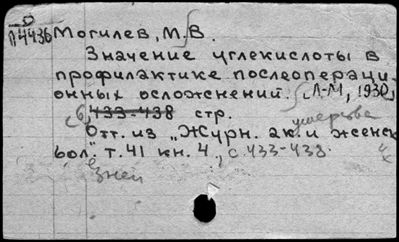 D
П4436 Могилев, М.В.
Значение углекислоты в
профилактике послеопераци-
онных осложнений. Л-М, 1930,
6, 433-438 стр.
Отт. из „Журн. ак. и женск
бол" т.41 кн. 4, с.433-438.